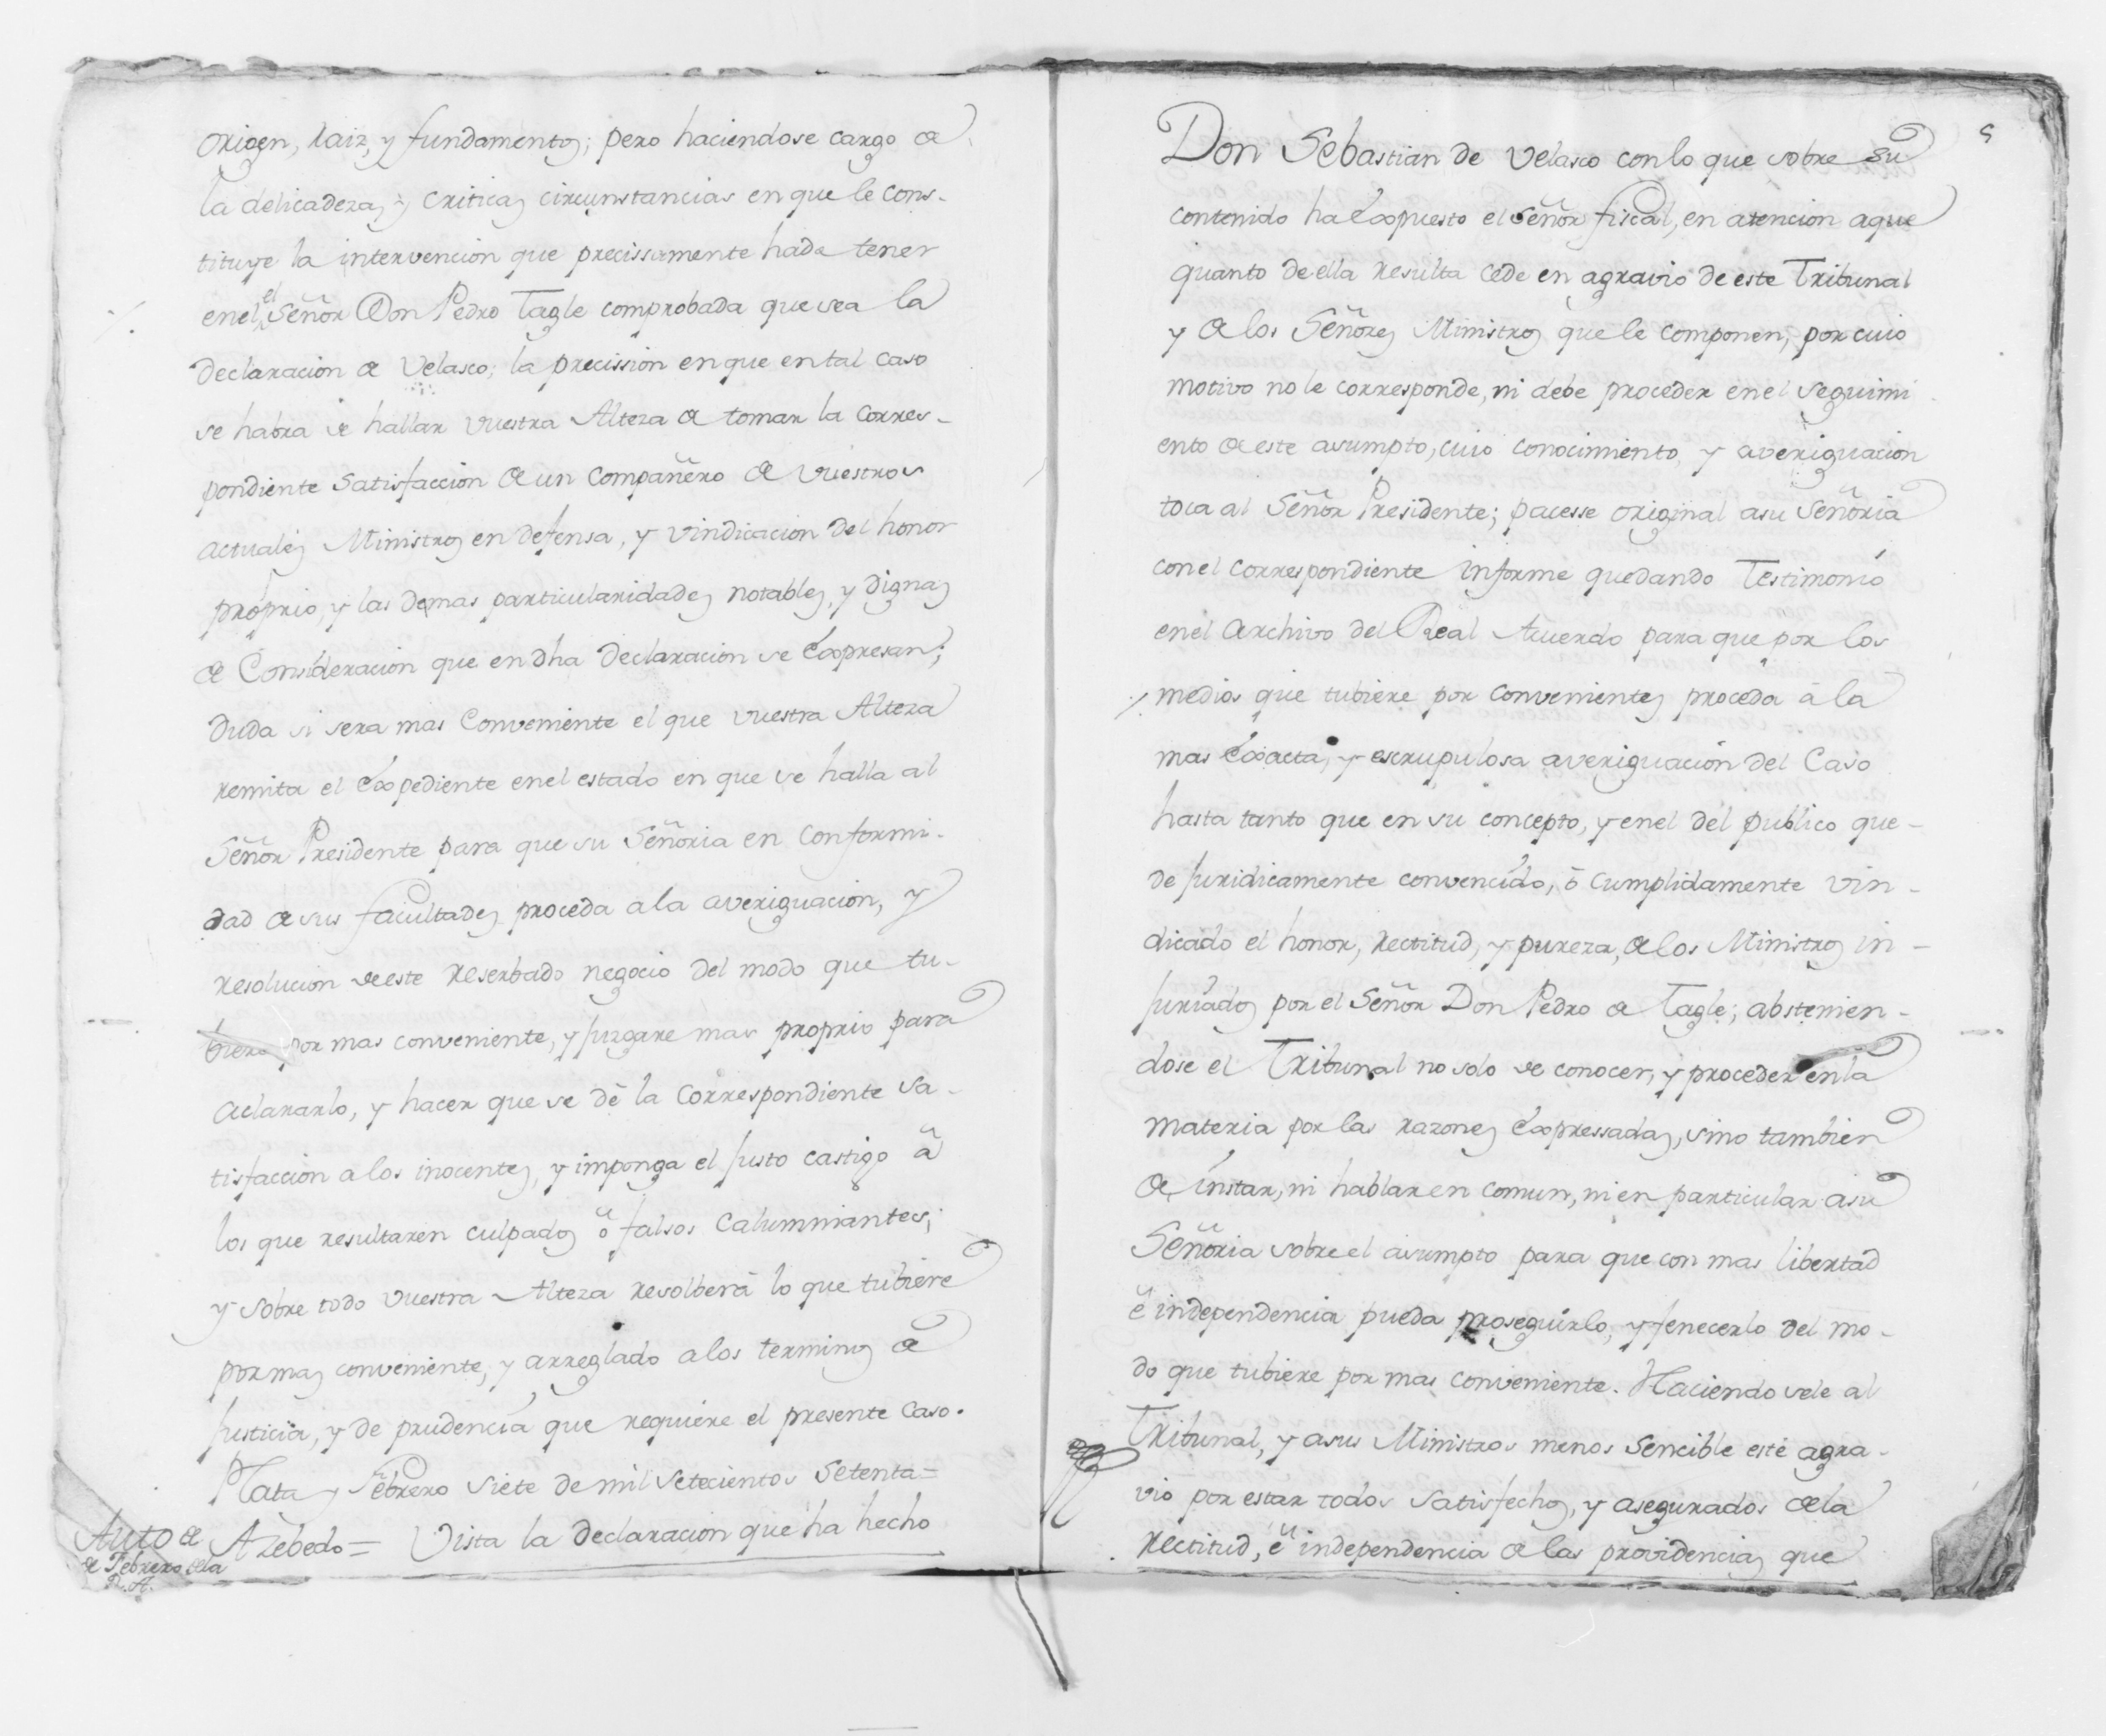 origen, raiz, y fundamentos; pero haciendose cargo de
la delicadeza, y criticas circunstancias en que le cons-
tituye la intervencion que precissamente ha da tener
en el el Señor Don Pedro Tagle comprobada que sea la
declaracion de Velasco; la precission en que en tal caso
se habra de hallar vuestra Alteza de tomar la corres-
pondiente satisfaccion de un compañero de vuestros
actuales Ministros en defensa, y vindicacion del honor
proprio, y las demas particularidades notables, y dignas
de Consideracion que en dha declaracion se expresan;
duda si sera mas conveniente el que vuestra Alteza
remita el expediente en el estado en que se halla al
Señor Presidente para que su Señoria en conformi-
dad de sus facultades proceda a la averiguacion, y
resolucion de este reserbado negocio del modo que tu-
biere por mas conveniente, y juzgare mas proprio para
aclararlo, y hacer que se dé la correspondiente sa-
tisfaccion a los inocentes, y imponga el justo castigo â
los que resultaren culpados ô falsos calumniantes;
y sobre todo vuestra Alteza resolberá lo que tubiere
por mas conveniente, y arreglado a los terminos de
Justicia, y de prudencia que requiere el presente caso.
Plata y Febrero siete de mil setecientos setenta=
Azebedo= Vista la declaracion que ha hecho
Auto de
de Febrero de la
R. A.
5
Don Sebastian de Velasco con lo que sobre su
contenido ha expuesto el Señor fiscal, en atencion a que
quanto de ella resulta cede en agravio de este Tribunal
y de los Señores Ministros que le componen, por cuio
motivo no le corresponde, ni debe proceder en el seguimi
ento de este asumpto, cuio conocimiento, y averiguacion
toca al Señor Presidente; pacesse original a su Señoria
con el correspondiente informe quedando Testimonio
en el Archivo del Real Acuerdo para que por los
medios que tubiere por convenientes proceda á la
mas exacta, y escrupulosa averiguación del Caso
hasta tanto que en su concepto, y en el del publico que-
de juridicamente convencido, ó cumplidamente vin-
dicado el honor, rectitud, y pureza, de los Ministros in-
juriados por el Señor Don Pedro de Tagle; abstenien-
dose el Tribunal no solo de conocer, y proceder en la
materia por las razones expressadas, sino tambien
de instar, ni hablar en comun, ni en particular a su
Señoria sobre el asumpto para que con mas libertad
ê independencia pueda proseguirlo, y fenecerlo del mo-
do que tubiere por mas conveniente. Haciendosele al
Tribunal, y a sus Ministros menos sencible este agra-
vio por estar todos satisfechos, y asegurados de la
rectitud, ê independencia de las providencias que